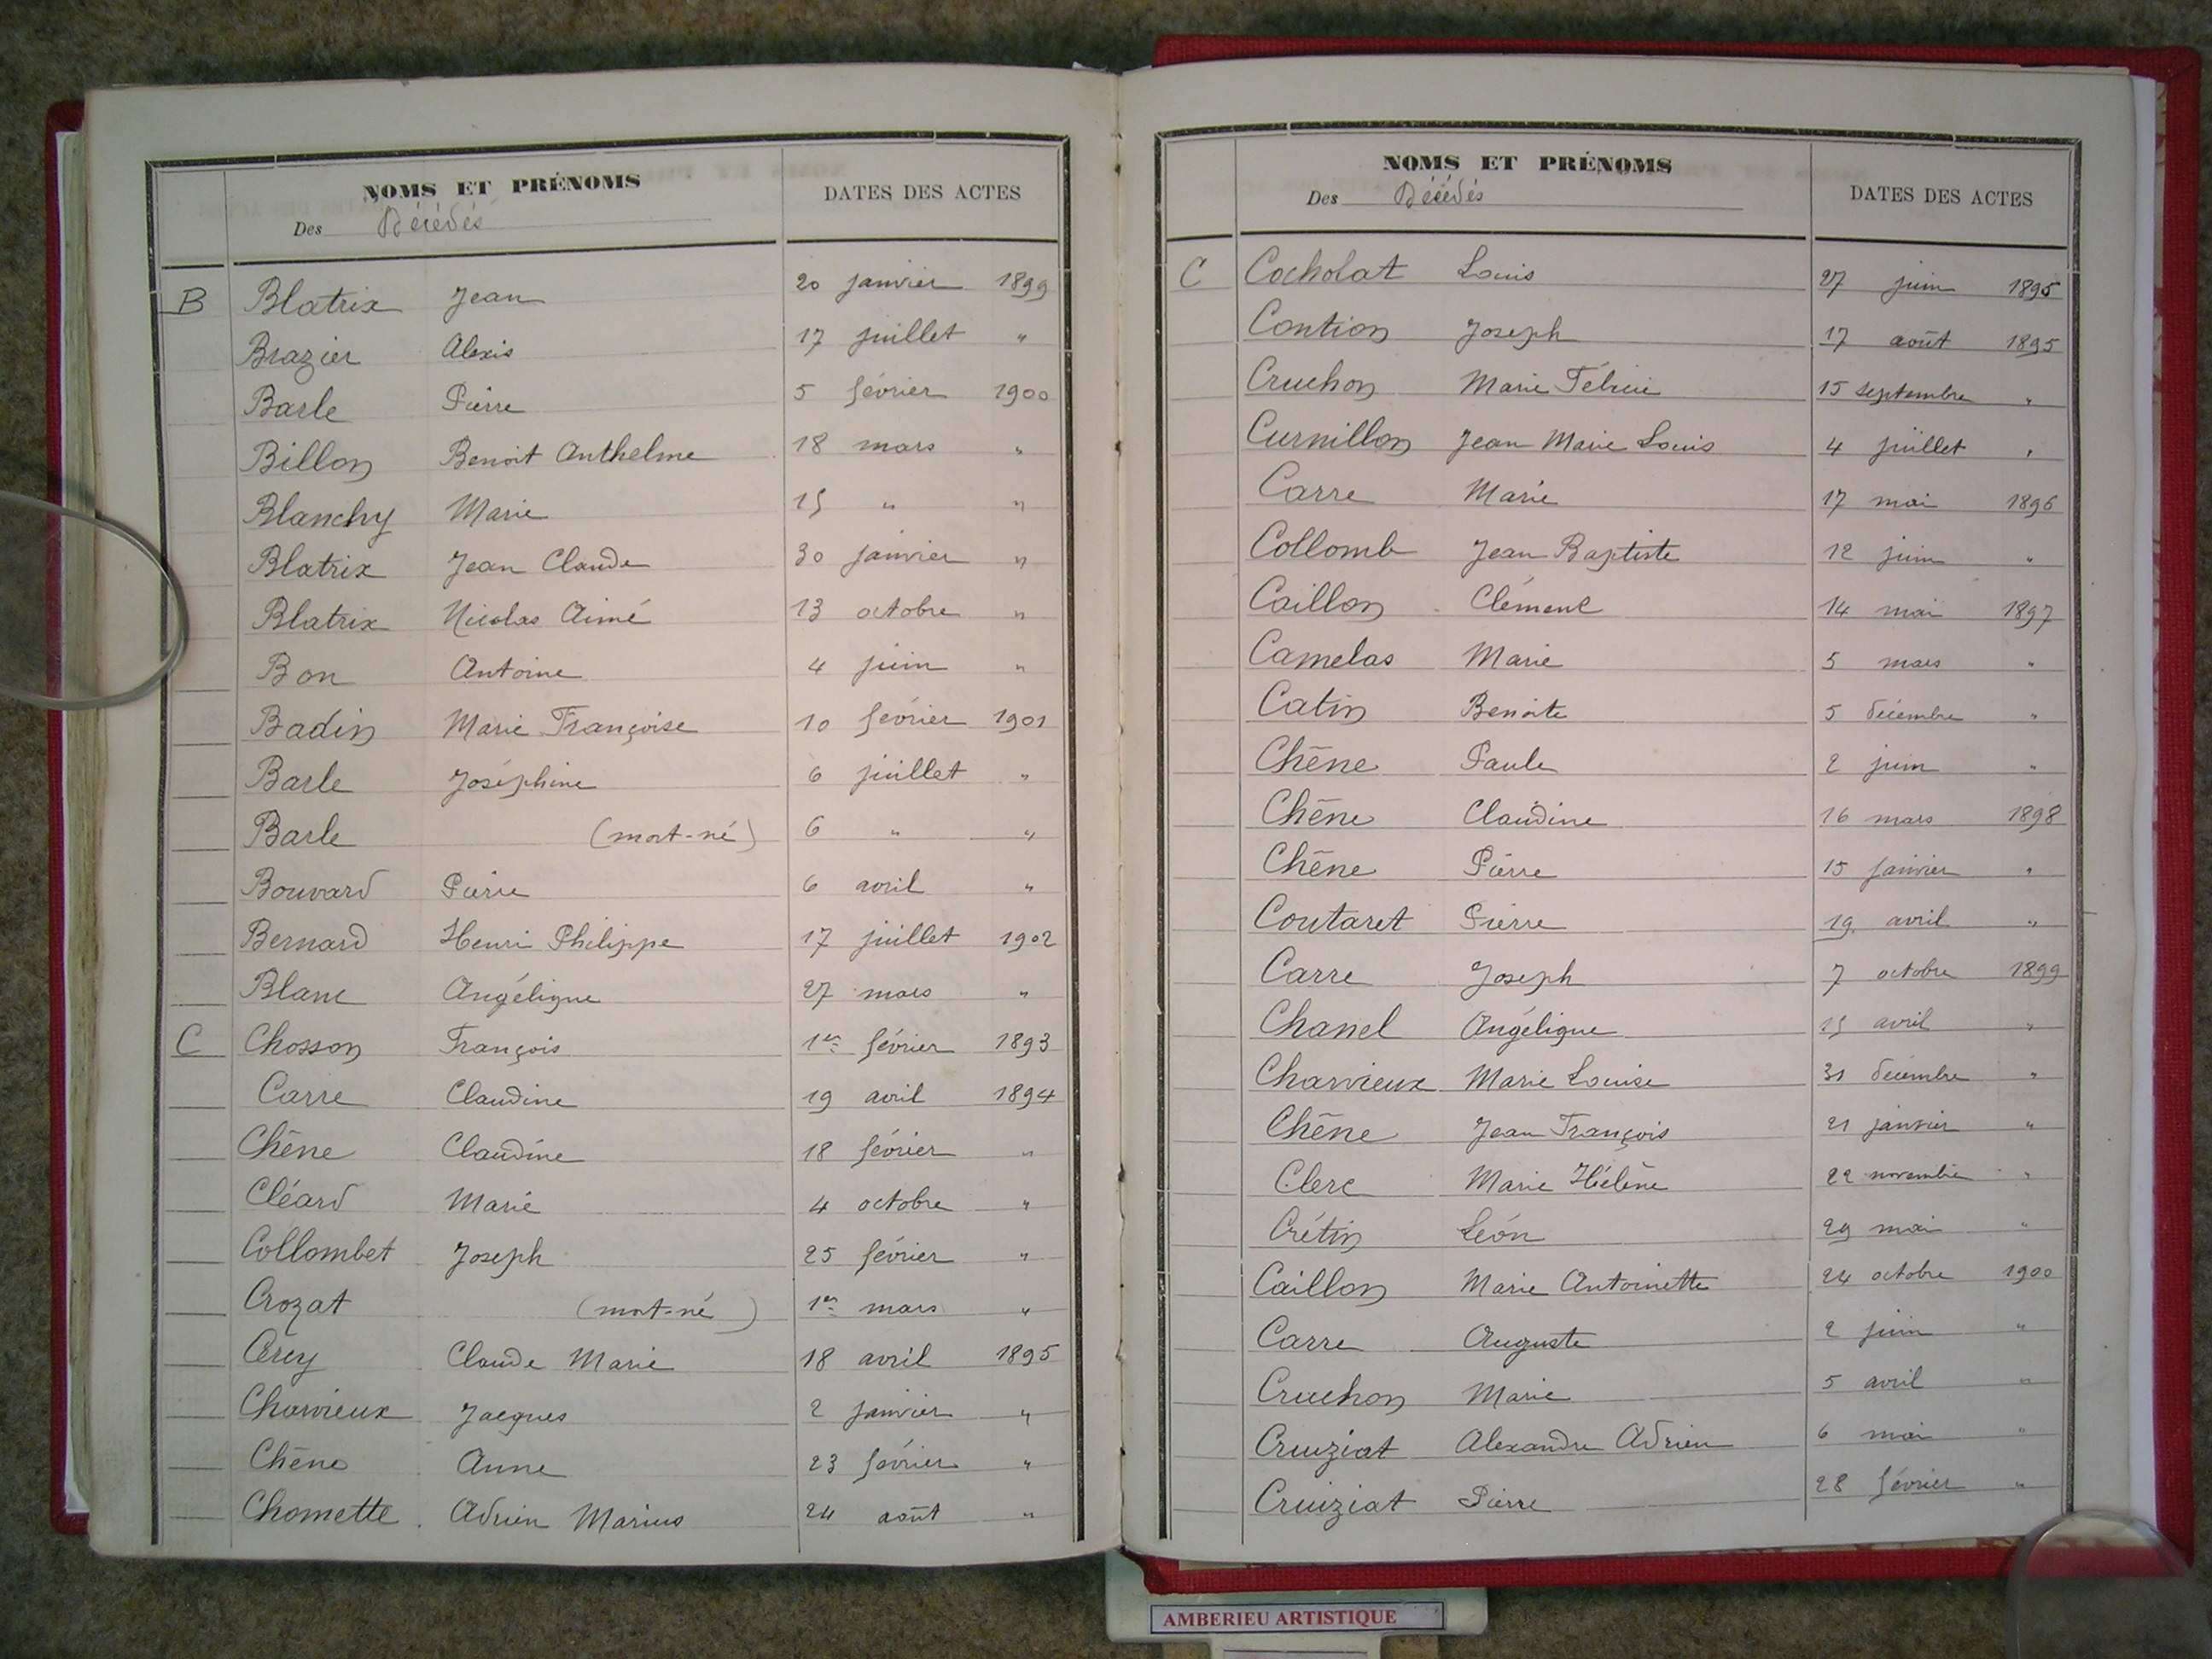 NOMS ET PRÉNOMS
Des Décédés
DATES DES ACTES
B Blatrix Jean 20 janvier 1899
Brazier Alexis 17 juillet "
Barle Pierre 5 février 1900
Billon Benoit Anthelme 18 mars "
Blanchy Marie 15 " "
Blatrix Jean Claude 30 janvier "
Blatrix Nicolas Aimé 13 octobre "
Bon Antoine 4 juin "
Badin Marie Françoise 10 février 1901
Barle Joséphine 6 juillet "
Barle (mort-né) 6 " "
Bouvard Pierre 6 avril "
Bernard Henri Philippe 17 juillet 1902
Blanc Angélique 27 mars "
C Chosson François 1er février 1893
Carre Claudine 19 avril 1894
Chêne Claudine 18 février "
Cléard Marie 4 octobre "
Collombet Joseph 25 février "
Crozat (mort-né) 1er mars "
Claude Marie 18 avril 1895
Charvieux Jacques 2 janvier "
Chêne Anne 23 février "
Chomette Adrien Marius 24 août "
NOMS ET PRÉNOMS
Des Décédés
DATES DES ACTES
C Cocholat Louis 27 juin 1895
Contion Joseph 17 août 1895
Cruchon Marie Félicie 15 septembre "
Curnillon Jean Marie Louis 4 juillet "
Carre Marie 17 mai 1896
Collomb Jean Baptiste 12 juin "
Caillon Clément 14 mai 1897
Camelas Marie 5 mars "
Catin Benoite 5 décembre "
Chêne Paule 2 juin "
Chêne Claudine 16 mars 1898
Chêne Pierre 15 janvier "
Coutaret Pierre 19 avril "
Carre Joseph 7 octobre 1899
Chanel Angélique 15 avril "
Charvieux Marie Louise 31 décembre "
Chêne Jean François 21 janvier "
Clerc Marie Hélène 22 novembre "
Crétin Léon 29 mai "
Caillon Marie Antoinette 24 octobre 1900
Carre Auguste 2 juin "
Cruchon Marie 5 avril "
Cruiziat Alexandre Adrien 6 mai "
Cruiziat Pierre 28 février "
AMBERIEU ARTISTIQUE